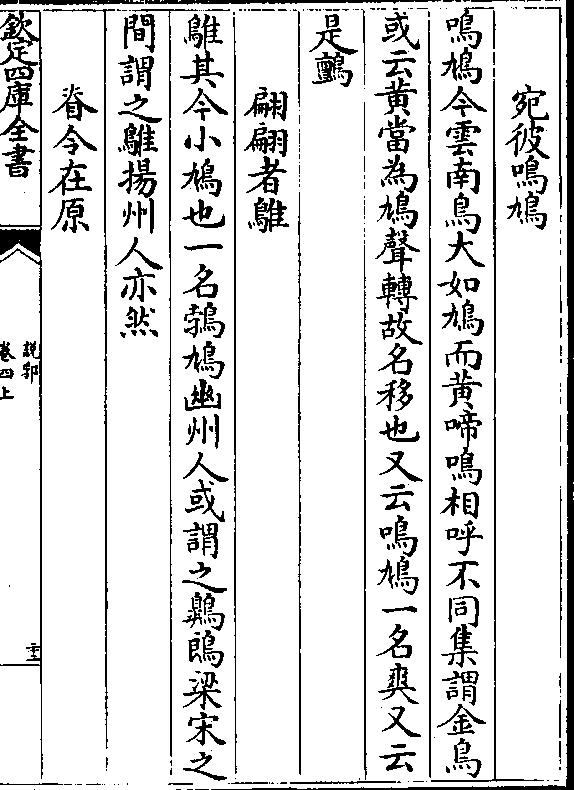 宛彼鳴鳩
鳴鳩今雲南鳥大如鳩而黄啼鳴相呼不同集謂金鳥
或云黄當為鳩聲轉故名移也又云鳴鳩一名爽又云
是鷧
翩翩者鵻
鵻其今小鳩也一名鵓鳩幽州人或謂之鷎鵖梁宋之
間謂之鵻揚州人亦然
脊令在原
欽定四庫全書
說郛
卷四上